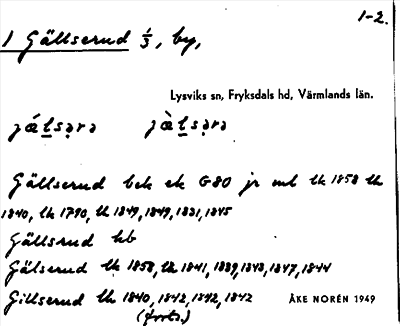 1-2.
1 Gällserud 1/3, by,
Lysviks sn, Fryksdals hd, Värmlands län.
Gällserud bek ek G80 jr ml lk 1858 lk
1840, lk 1790, lk 1849, 1849, 1831, 1845
Gällsrud kb
Gälserud lk 1858, lk 1841, 1839, 1843, 1847, 1844
Gillserud lk 1840, 1842, 1842, 1842 ÅKE NORÉN 1949
(forts.)